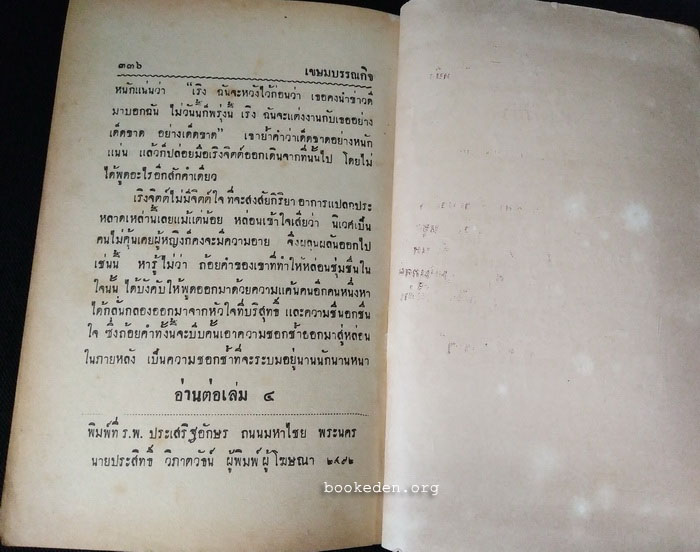 ๓๓๖ เขษมบรรณกิจ
หนักแน่นว่า “เริง ฉันจะหวังไว้ก่อนว่า เธอคงนำข่าวดี
มาบอกฉัน ไม่วันนี้ก็พรุ่งนี้ เริง ฉันจะแต่งงานกับเธออย่าง
เด็ดขาด อย่างเด็ดขาด” เขาย้ำคำว่าเด็ดขาดอย่างหนัก
แน่น แล้วก็ปล่อยมือเริงจิตต์ออกเดินจากที่นั้นไป โดยไม่
ได้พูดอะไรอีกสักคำเดียว
เริงจิตต์ไม่มีจิตต์ใจที่จะสงสัยกิริยาอาการแปลกประ
หลาดเหล่านี้เลยแม้แต่น้อย หล่อนเข้าใจเสียว่า นิเวศเป็น
คนไม่คุ้นเคยผู้หญิงก็คงจะมีความอาย จึงผลุนผลันออกไป
เช่นนี้ หารู้ไม่ว่า ถ้อยคำของเขาที่ทำให้หล่อนชุ่มชื่นใน
ใจนั้น ได้บังคับให้พูดออกมาด้วยความแค้นคนอีกคนหนึ่งหา
ได้กลั่นกลองออกมาจากหัวใจที่บริสุทธิ์ และความชื่นอกชื่น
ใจ ซึ่งถ้อยคำทั้งนี้จะบีบคั้นเอาความชอกช้ำออกมาสู่หล่อน
ในภายหลัง เป็นความชอกช้ำที่จะระบมอยู่นานนักนานหนา
อ่านต่อเล่ม ๔
พิมพ์ที่ ร.พ. ประเสริฐอักษร ถนนมหาไชย พระนคร
นายประสิทธิ์ วิภาตวัธน์ ผู้พิมพ์ผู้โฆษณา ๒๔๙๒
bookeden.org